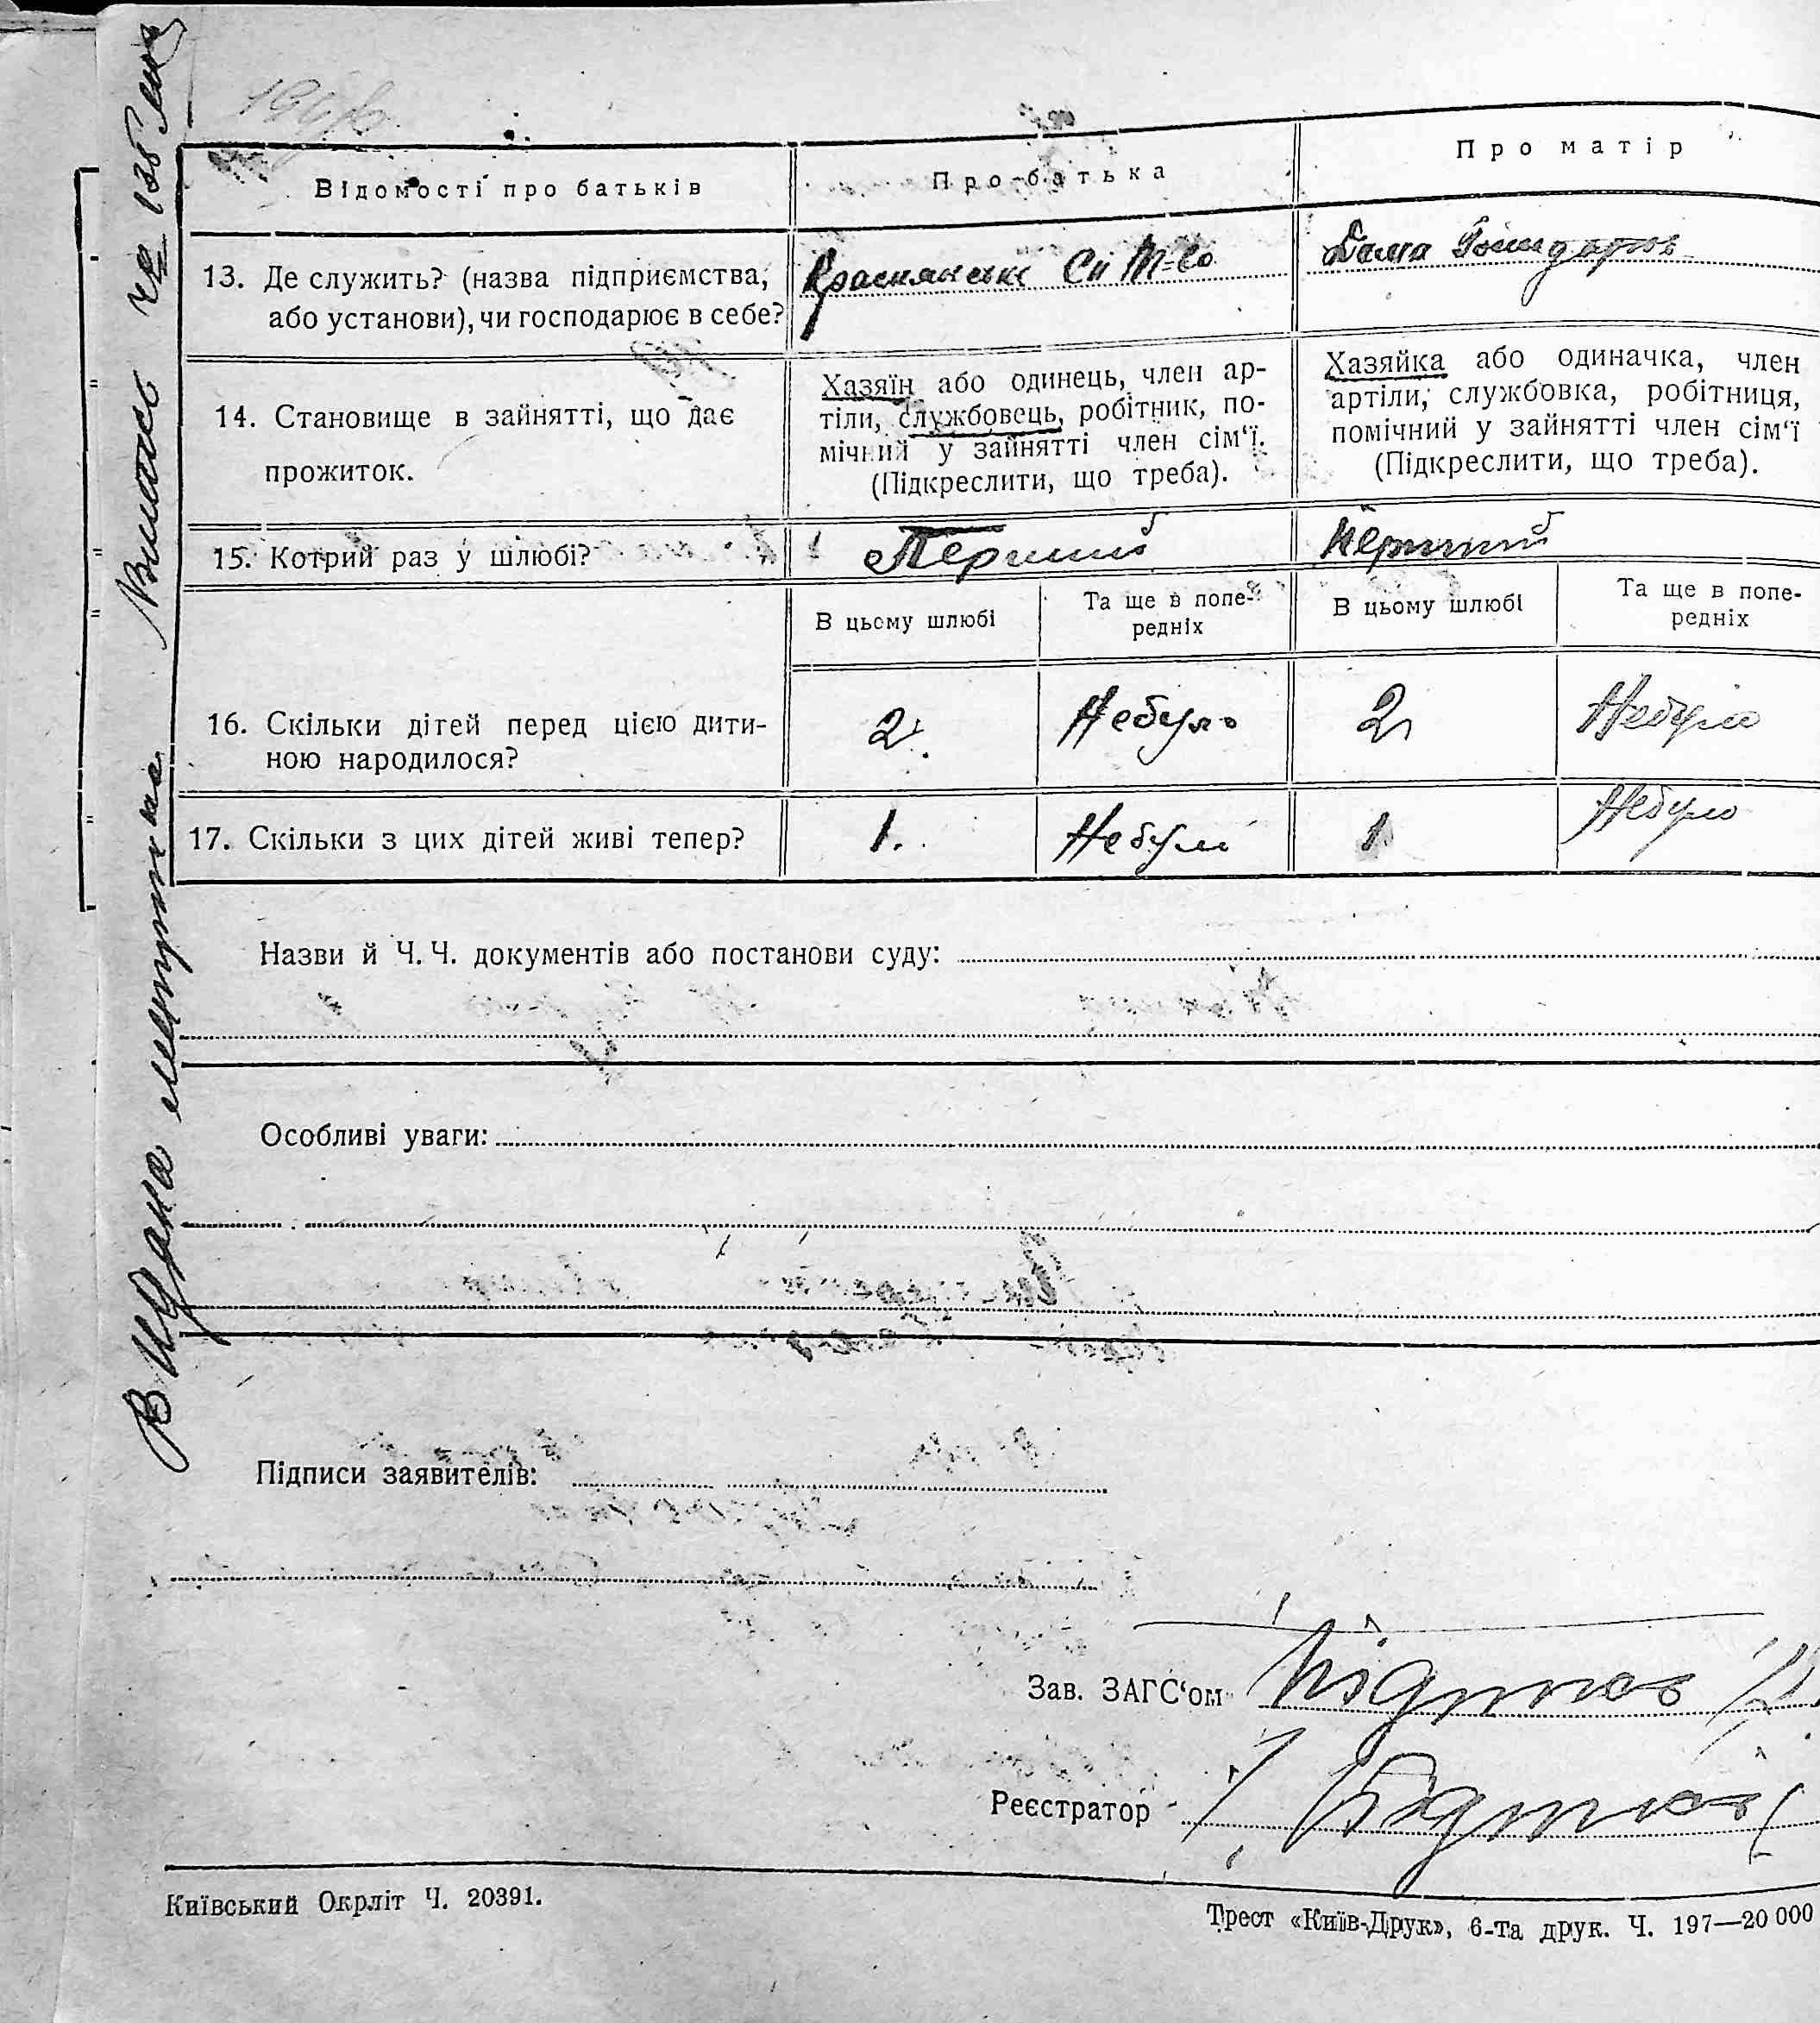 Відомості про батьків
Про батька
Про матір
13. Де служить? (назва підприємства,
або установи), чи господарює в себе?
Краснянське Сп Т-во
Дома
14. Становище в зайнятті, що дає
прожиток.
Хазяїн або одинець, член ар-
тіли, службовець, робітник, по-
мічний у зайнятті член сім'ї.
(Підкреслити, що треба).
Хазяйка або одиначка, член
артіли, службовка, робітниця,
помічний у зайнятті член сім'ї
(Підкреслити, що треба).
15. Котрий раз у шлюбі?
Перший
Перший
В цьому шлюбі
Та ще в попе-
редніх
В цьому шлюбі
Та ще в попе-
редніх
16. Скільки дітей перед цією дити-
ною народилося?
2.
Небуло
2
Небуло
17. Скільки з цих дітей живі тепер?
1.
Небуло
1
Небуло
Назви й Ч. Ч. документів або постанови суду:
Особливі уваги:
Підписи заявителів:
Зав. ЗАГС'ом
Реєстратор
Київський Окрліт Ч. 20391.
Трест «Київ-Друк», 6-та друк. Ч. 197—20 000
Видана метрика